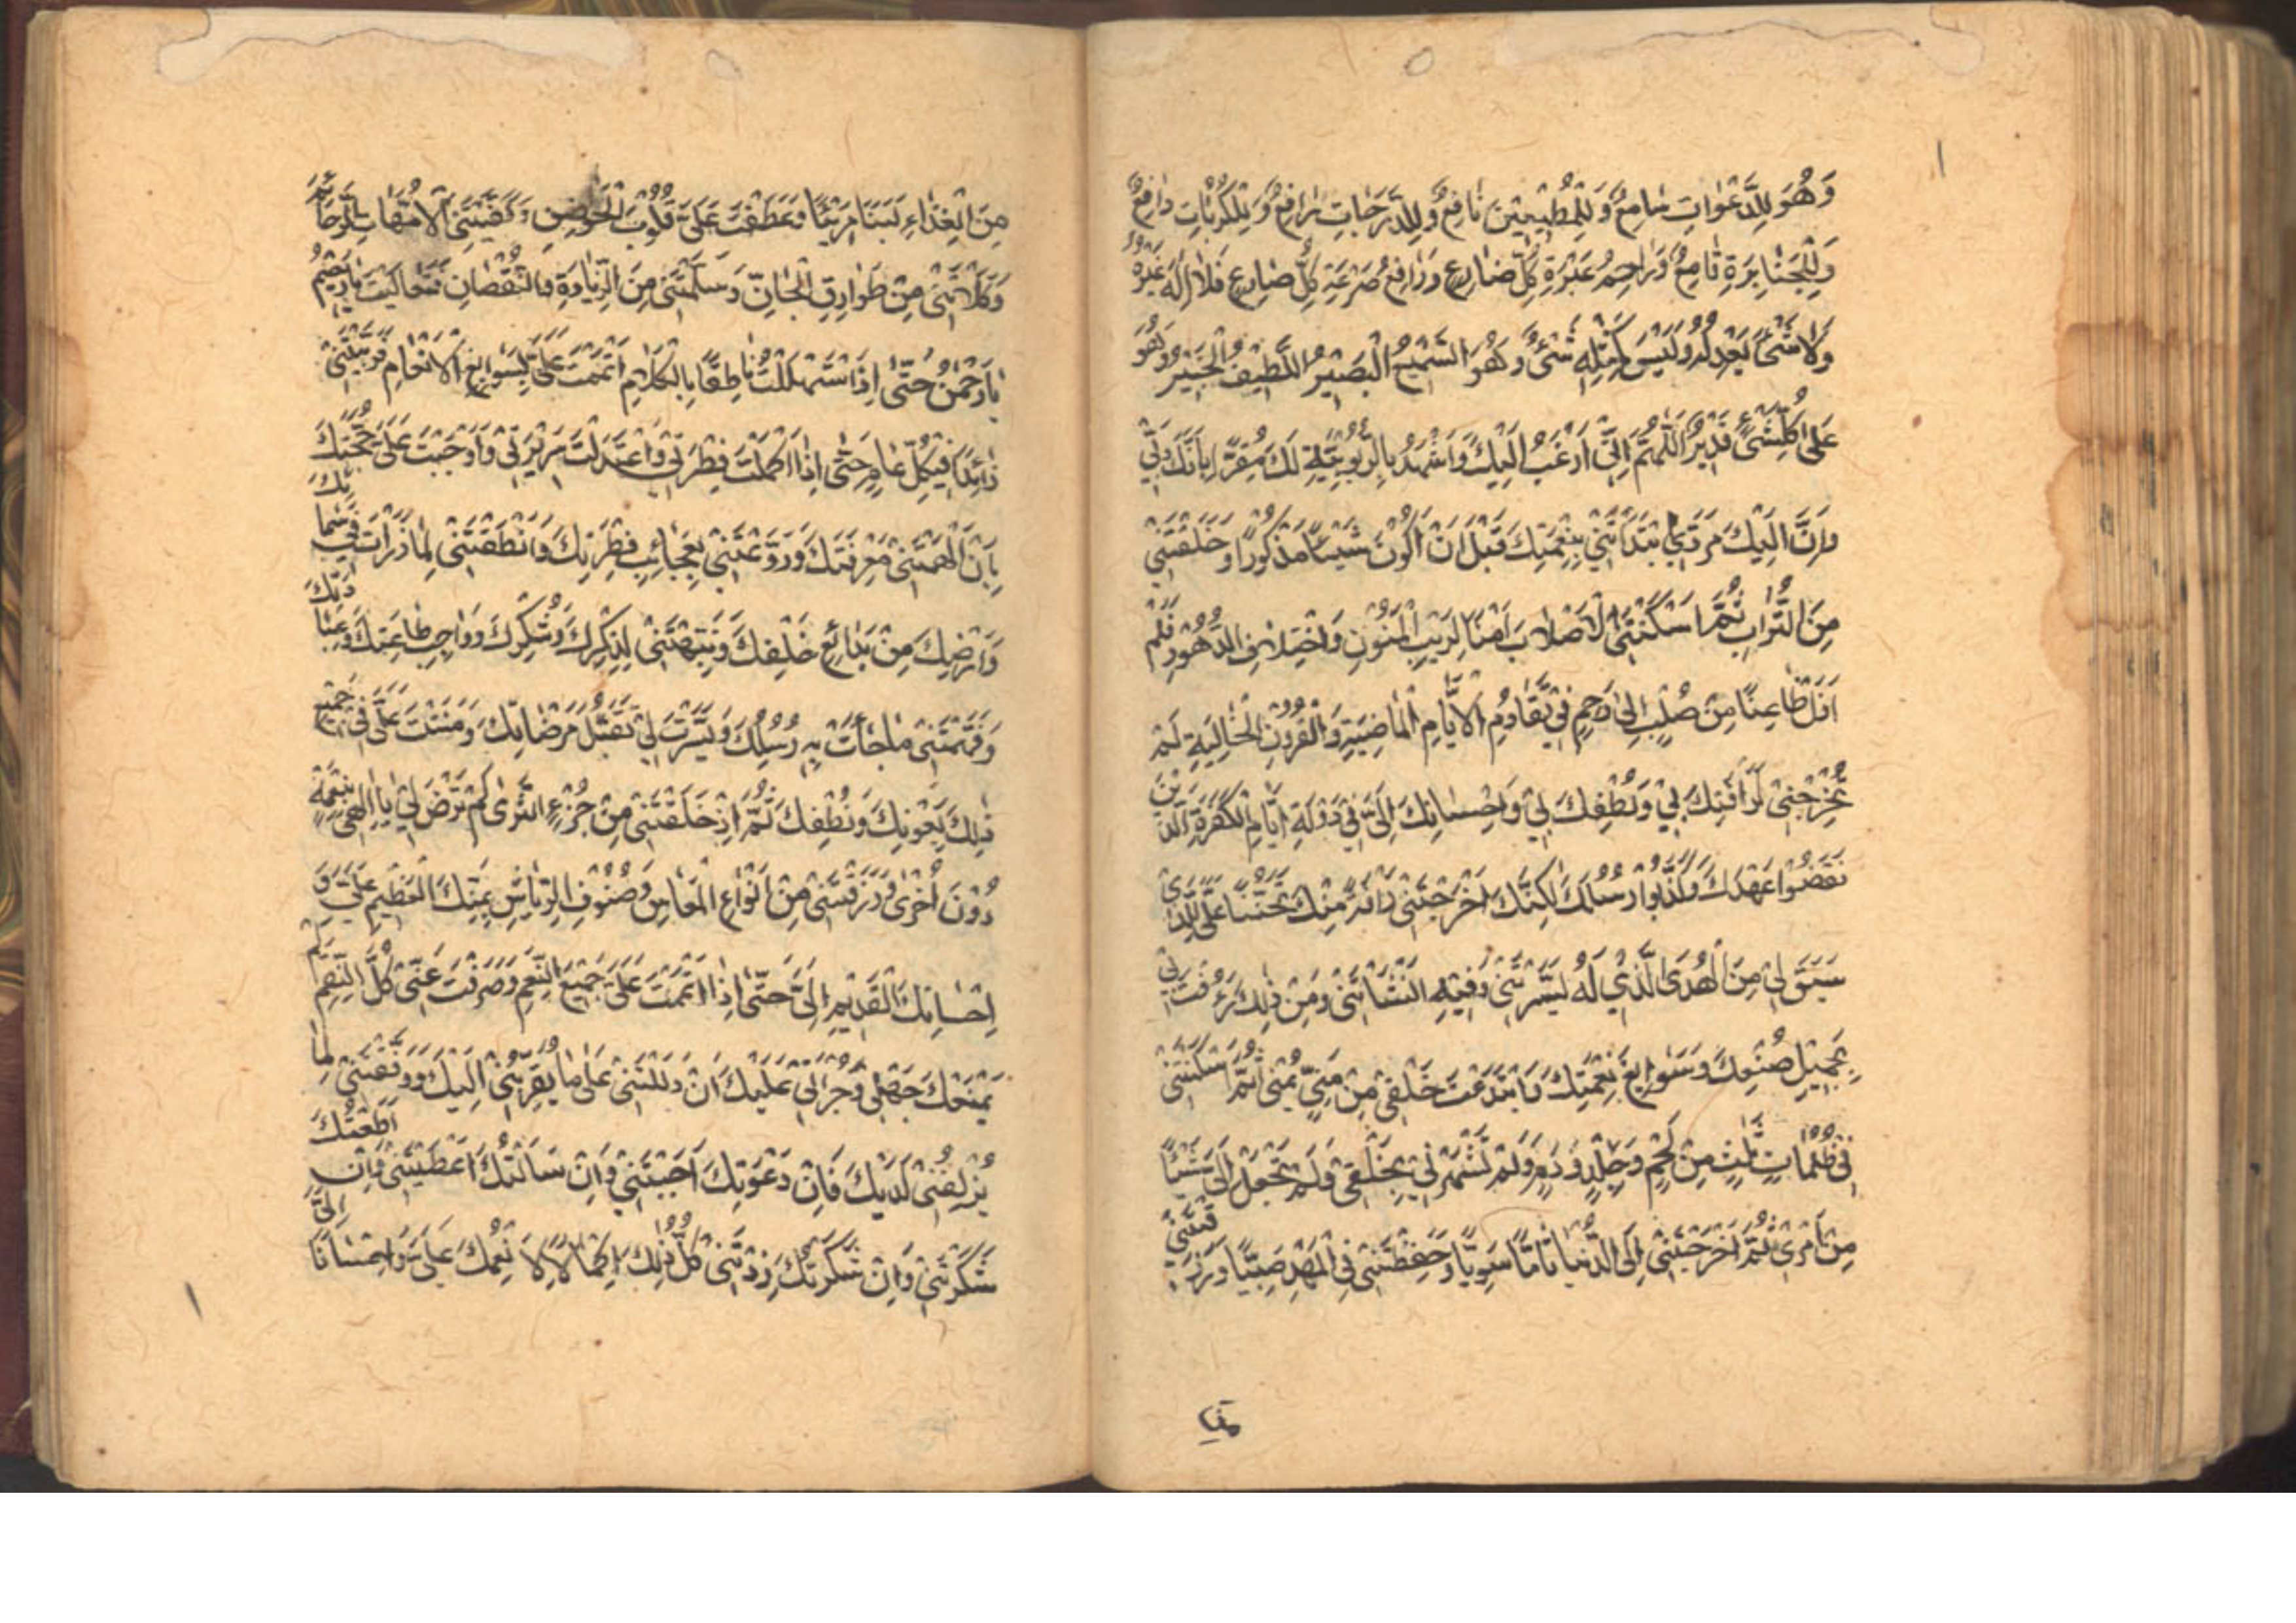 وَهُوَ لِلدَّعَوٰاتِ سٰامِعٌ وَلِلْمُطِيعِينَ نٰافِعٌ وَلِلدَّرَجٰاتِ رٰافِعٌ وَلِلْكُرُبٰاتِ دٰافِعٌ
وَلِلْجَبٰابِرَةِ قٰامِعٌ وَرٰاحِمُ عَبْرَةِ كُلِّ ضٰارِعٍ وَرٰافِعُ صَرْعَةِ كُلِّ ضٰارِعٍ فَلٰا اِلٰهَ غَيْرُهُ
وَلٰا شَىْءَ يَعْدِلُهُ وَلَيْسَ كَمِثْلِهِ شَىْءٌ وَهُوَ السَّمِيعُ الْبَصِيرُ اللَّطِيفُ الْخَبِيرُ وَهُوَ
عَلىٰ كُلِّ شَىْءٍ قَدِيرٌ اَللّٰهُمَّ اِنِّى اَرْغَبُ اِلَيْكَ وَاَشْهَدُ بِالرُّبُوبِيَّةِ لَكَ مُقِرًّا بِاَنَّكَ رَبِّى
وَاَنَّ اِلَيْكَ مَرَدِّى ابْتَدَأْتَنِى بِنِعْمَتِكَ قَبْلَ اَنْ اَكُونَ شَيْئًا مَذْكُورًا وَخَلَقْتَنِى
مِنَ التُّرٰابِ ثُمَّ اَسْكَنْتَنِى الْاَصْلٰابَ اٰمِنًا لِرَيْبِ الْمَنُونِ وَاخْتِلٰافِ الدُّهُورِ فَلَمْ
اَزَلْ ظٰاعِنًا مِنْ صُلْبٍ اِلىٰ رَحِمٍ فِى تَقٰادُمِ الْاَيّٰامِ الْمٰاضِيَةِ وَالْقُرُونِ الْخٰالِيَةِ لَمْ
تُخْرِجْنِى لِرَأْفَتِكَ بِى وَلُطْفِكَ لِى وَاِحْسٰانِكَ اِلَىَّ فِى دَوْلَةِ اَيّٰامِ الْكَفَرَةِ الَّذِينَ
نَقَضُوا عَهْدَكَ وَكَذَّبُوا رُسُلَكَ لٰكِنَّكَ اَخْرَجْتَنِى رَأْفَةً مِنْكَ وَتَحَنُّنًا عَلَىَّ لِلَّذِى
سَبَقَ لِى مِنَ الْهُدَى الَّذِى لَهُ يَسَّرْتَنِى وَفِيهِ اَنْشَأْتَنِى وَمِنْ ذٰلِكَ رَءُفْتَ بِى
بِجَمِيلِ صُنْعِكَ وَسَوٰابِغِ نِعْمَتِكَ فَابْتَدَعْتَ خَلْقِى مِنْ مَنِىٍّ يُمْنىٰ ثُمَّ اَسْكَنْتَنِى
فِى ظُلُمٰاتٍ ثَلٰثٍ مِنْ لَحْمٍ وَجِلْدٍ وَدَمٍ وَلَمْ تُشَهِّرْنِى بِخَلْقِى وَلَمْ تَجْعَلْ اِلَىَّ شَيْئًا
مِنْ اَمْرِى ثُمَّ اَخْرَجْتَنِى اِلَى الدُّنْيٰا تٰامًّا سَوِيًّا وَحَفِظْتَنِى فِى الْمَهْدِ صَبِيًّا وَرَزَقْتَنِى
مِنَ الْغِذٰاءِ لَبَنًا مَرِيًّا وَعَطَفْتَ عَلَىَّ قُلُوبَ الْحَوٰاضِنِ وَكَفَّيْتَنِى الْاُمَّهٰاتِ الرَّحٰائِمَ
وَكَلَأْتَنِى مِنْ طَوٰارِقِ الْجٰانِّ وَسَلَّمْتَنِى مِنَ الزِّيٰادَةِ وَالنُّقْصٰانِ فَتَعٰالَيْتَ يٰا رَحِيمُ
يٰا رَحْمٰنُ حَتّىٰ اِذَا اسْتَهْلَلْتُ نٰاطِقًا بِالْكَلٰامِ اَتْمَمْتَ عَلَىَّ سَوٰابِغَ الْاِنْعٰامِ فَرَبَّيْتَنِى
زٰائِدًا فِى كُلِّ عٰامٍ حَتّىٰ اِذَا اكْمَلَتْ فِطْرَتِى وَاعْتَدَلَتْ مَرِيرَتِى وَاَوْجَبْتَ عَلَىَّ حُجَّتَكَ
بِاَنْ اَلْهَمْتَنِى مَعْرِفَتَكَ وَرَوَّعْتَنِى بِعَجٰائِبِ فِطْرَتِكَ وَاَنْطَقْتَنِى لِمٰا ذَرَأْتَ فِى سَمٰائِكَ
وَاَرْضِكَ مِنْ بَدٰائِعِ خَلْقِكَ وَنَبَّهْتَنِى لِذِكْرِكَ وَشُكْرِكَ وَوٰاجِبِ طٰاعَتِكَ وَعِبٰادَتِكَ
وَفَهَّمْتَنِى مٰا جٰأَتْ بِهِ رُسُلُكَ وَيَسَّرْتَ لِى تَقَبُّلَ مَرْضٰاتِكَ وَمَنَنْتَ عَلَىَّ فِى جَمِيعِ
ذٰلِكَ بِعَوْنِكَ وَلُطْفِكَ ثُمَّ اِذْ خَلَقْتَنِى مِنْ جُزْءِ الثَّرىٰ لَمْ تَرْضَ لِى يٰا اِلٰهِى بِنِعْمَةٍ
دُوْنَ اُخْرىٰ وَرَزَقْتَنِى مِنْ اَنْوٰاعِ الْمَعٰاشِ وَصُنُوفِ الرِّيٰاشِ بِمَنِّكَ الْعَظِيمِ عَلَىَّ وَ
اِحْسٰانِكَ الْقَدِيمِ اِلَىَّ حَتّىٰ اِذٰا اَتْمَمْتَ عَلَىَّ جَمِيعَ النِّعَمِ وَصَرَفْتَ عَنِّى كُلَّ النِّقَمِ لَمْ
يَمْنَعْكَ جَهْلِى وَجُرْأَتِى عَلَيْكَ اَنْ دَلَلْتَنِى عَلىٰ مٰا يُقَرِّبُنِى اِلَيْكَ وَوَفَّقْتَنِى لِمٰا
يُزْلِفُنِى لَدَيْكَ فَاِنْ دَعَوْتُكَ اَجَبْتَنِى وَاِنْ سَاَلْتُكَ اَعْطَيْتَنِى وَاِنْ اَطَعْتُكَ
شَكَرْتَنِى وَاِنْ شَكَرْتُكَ زِدْتَنِى كُلُّ ذٰلِكَ اِكْمٰالًا لِاَنْعُمِكَ عَلَىَّ وَاِحْسٰانًا اِلَىَّ